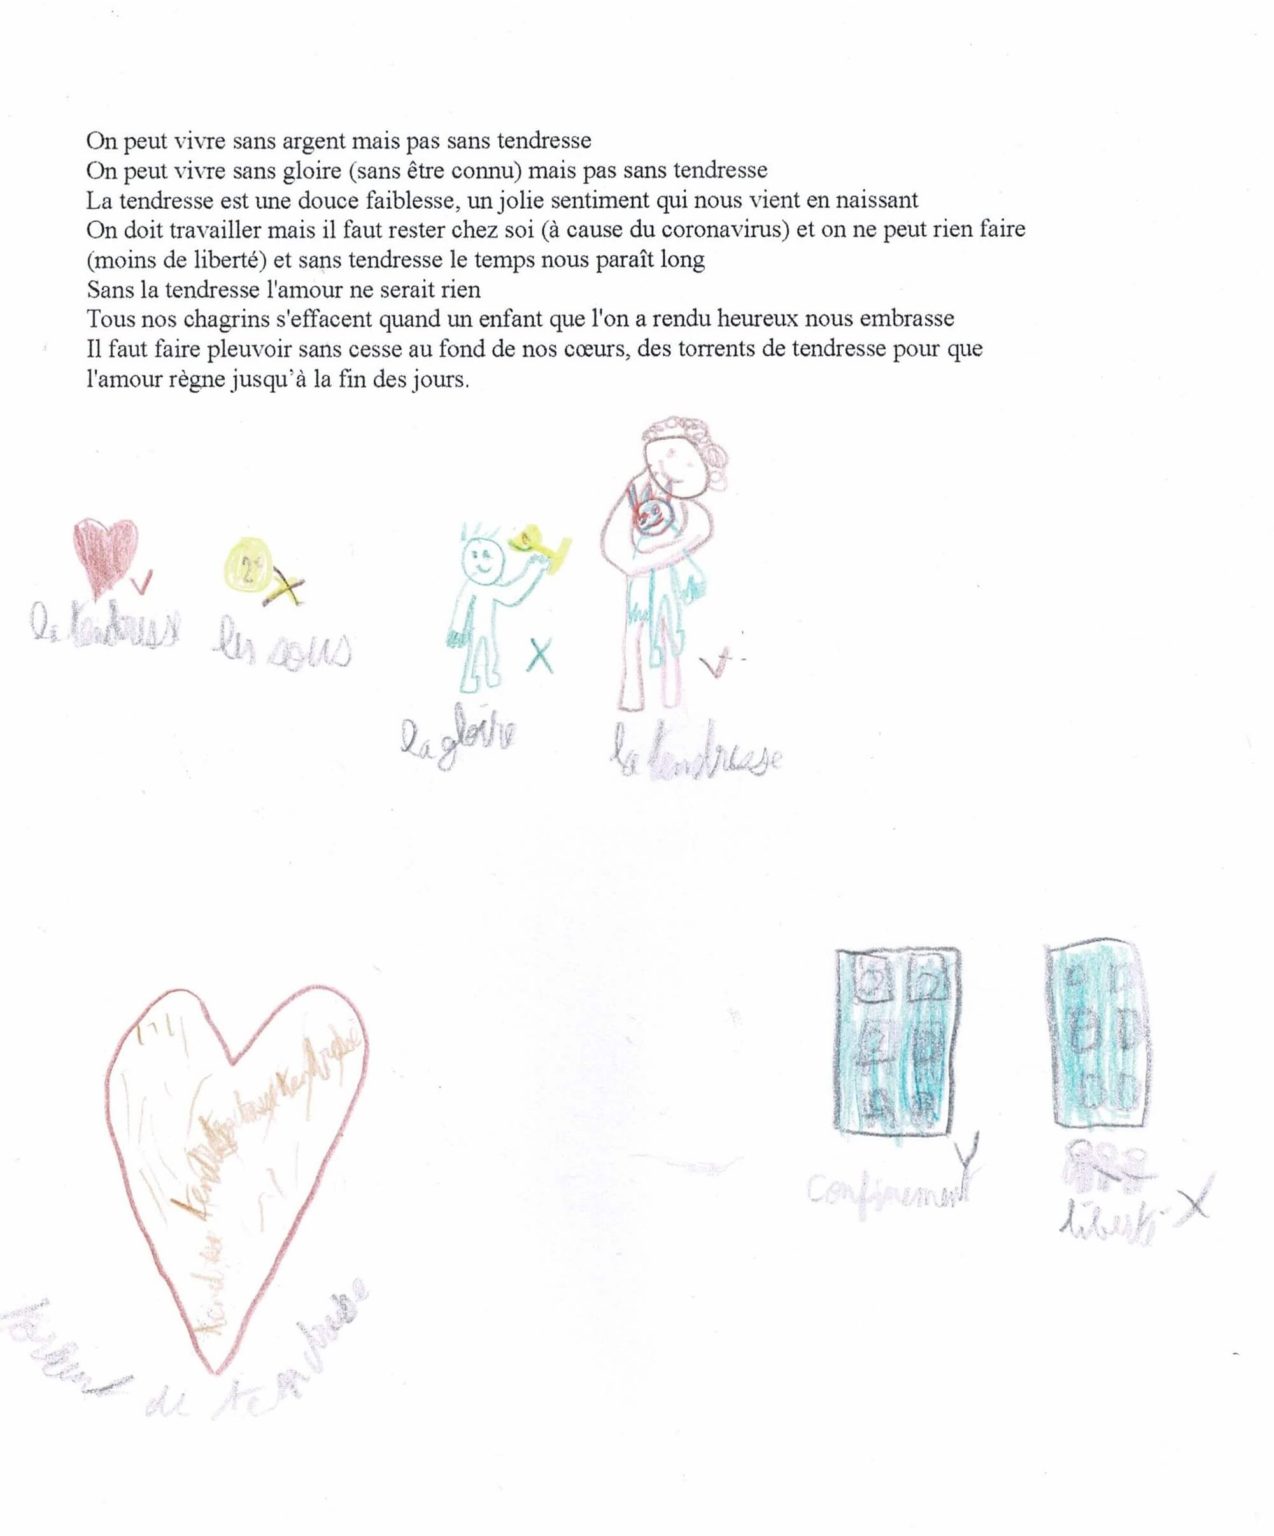 On peut vivre sans argent mais pas sans tendresse
On peut vivre sans gloire (sans être connu) mais pas sans tendresse
La tendresse est une douce faiblesse, un jolie sentiment qui nous vient en naissant
On doit travailler mais il faut rester chez soi (à cause du coronavirus) et on ne peut rien faire
(moins de liberté) et sans tendresse le temps nous paraît long
Sans la tendresse l'amour ne serait rien
Tous nos chagrins s'effacent quand un enfant que l'on a rendu heureux nous embrasse
Il faut faire pleuvoir sans cesse au fond de nos cœurs, des torrents de tendresse pour que
l'amour règne jusqu'à la fin des jours.
2€
la tendresse
les sous
la gloire
la tendresse
confinement
liberté
de tendresse